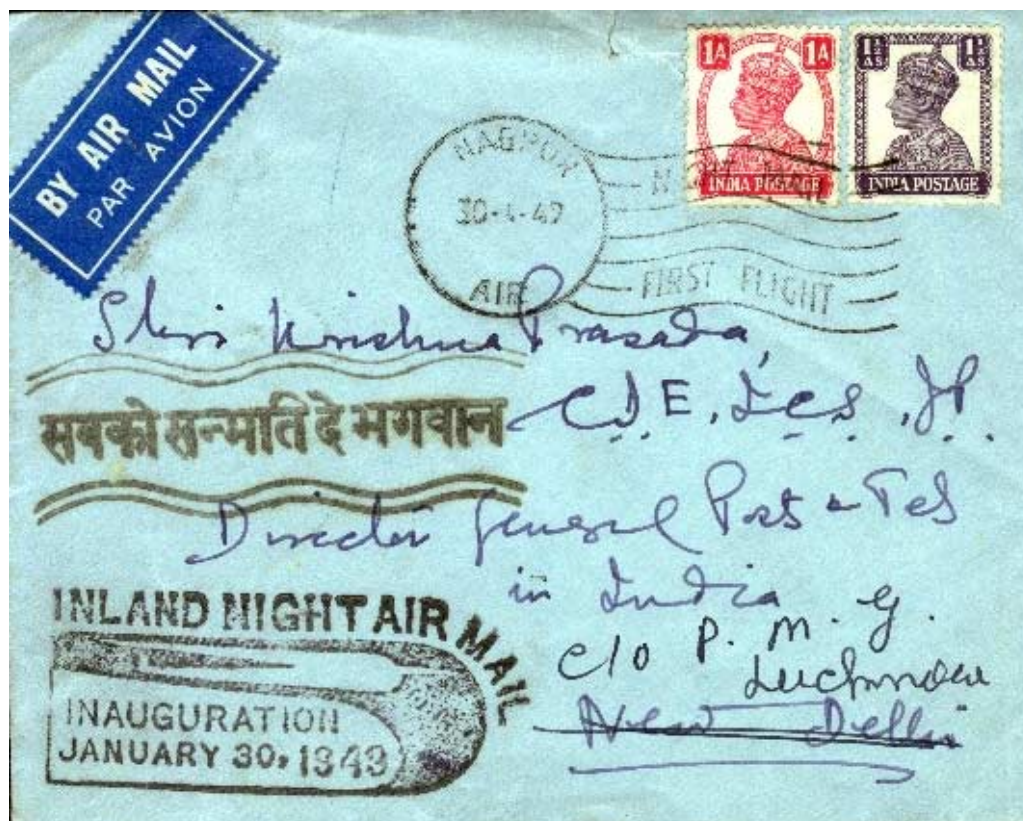 BY AIR MAIL
PAR AVION
1A 1A
INDIA POSTAGE
1½ AS 1½ AS
INDIA POSTAGE
NAGPUR
AIR
FIRST FLIGHT
Shri Krishna Prasada,
C.I.E, I.C.S, J.P.
सबको सन्मति दे भगवान
Director General Posts & Tels
in India
c/o P. M. G.
Lucknow
New Delhi
INLAND NIGHT AIR MAIL
INAUGURATION
JANUARY 30, 1949